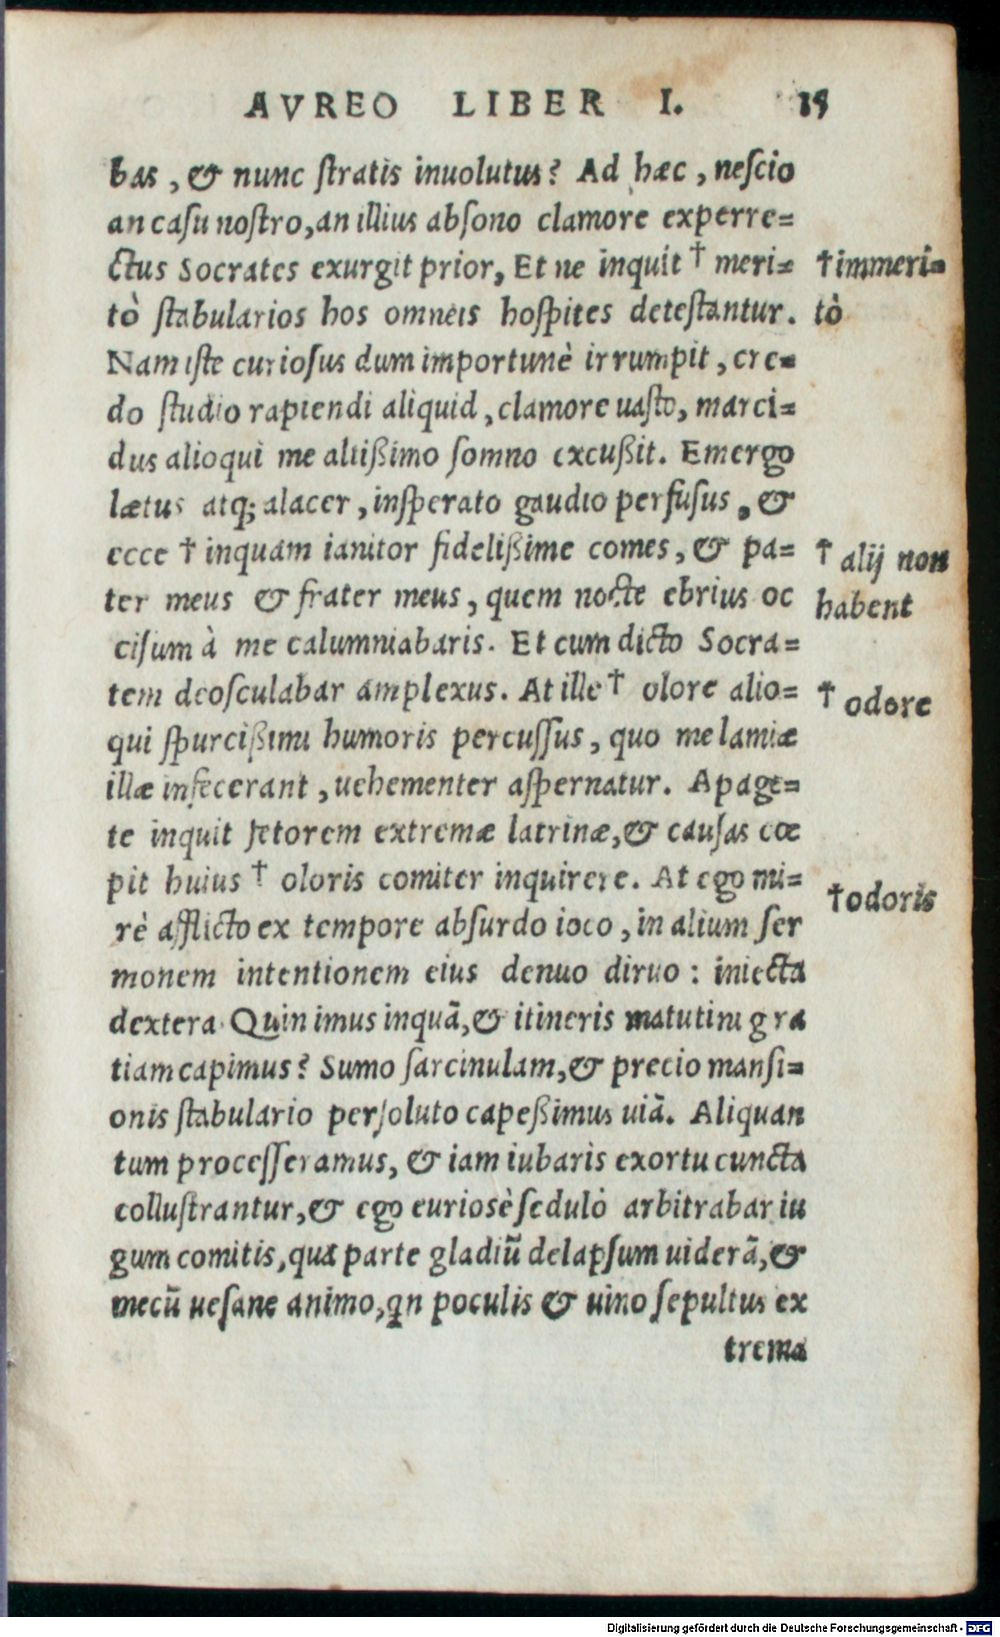 AVREO LIBER I. 15
bas, & nunc ſtratis inuolutus? Ad hæc, neſcio
an caſu noſtro, an illius abſono clamore experre=
ctus Socrates exurgit prior, Et ne inquit † meri=
tò ſtabularios hos omneis hoſpites deteſtantur.
†immeri=
tò
Nam iſte curioſus dum importunè irrumpit, cre=
do ſtudio rapiendi aliquid, clamore uaſto, marci=
dus alioqui me altißimo ſomno excußit. Emergo
lætus atq; alacer, inſperato gaudio perfuſus, &
ecce † inquam ianitor fidelißime comes, & pa=
ter meus & frater meus, quem nocte ebrius oc
† alij non
habent
ciſum à me calumniabaris. Et cum dicto Socra=
tem deoſculabar amplexus. At ille † olore alio=
† odore
qui ſpurcißimi humoris percuſſus, quo me lamiæ
illæ infecerant, uehementer aſpernatur. Apage=
te inquit fetorem extremæ latrinæ, & cauſas cœ
pit huius † oloris comiter inquirere. At ego mi=
†odoris
rè afflicto ex tempore abſurdo ioco, in alium ſer
monem intentionem eius denuo diruo : iniecta
dextera Quin imus inquã, & itineris matutini gra
tiam capimus? Sumo ſarcinulam, & precio manſi=
onis ſtabulario perſoluto capeßimus uiã. Aliquan
tum proceſſeramus, & iam iubaris exortu cuncta
colluſtrantur, & ego euriosè ſedulò arbitrabar iu
gum comitis, qua parte gladiũ delapſum uiderã, &
mecũ ueſane animo, qn poculis & uino ſepultus ex
trema
Digitalisierung gefördert durch die Deutsche Forschungsgemeinschaft - DFG